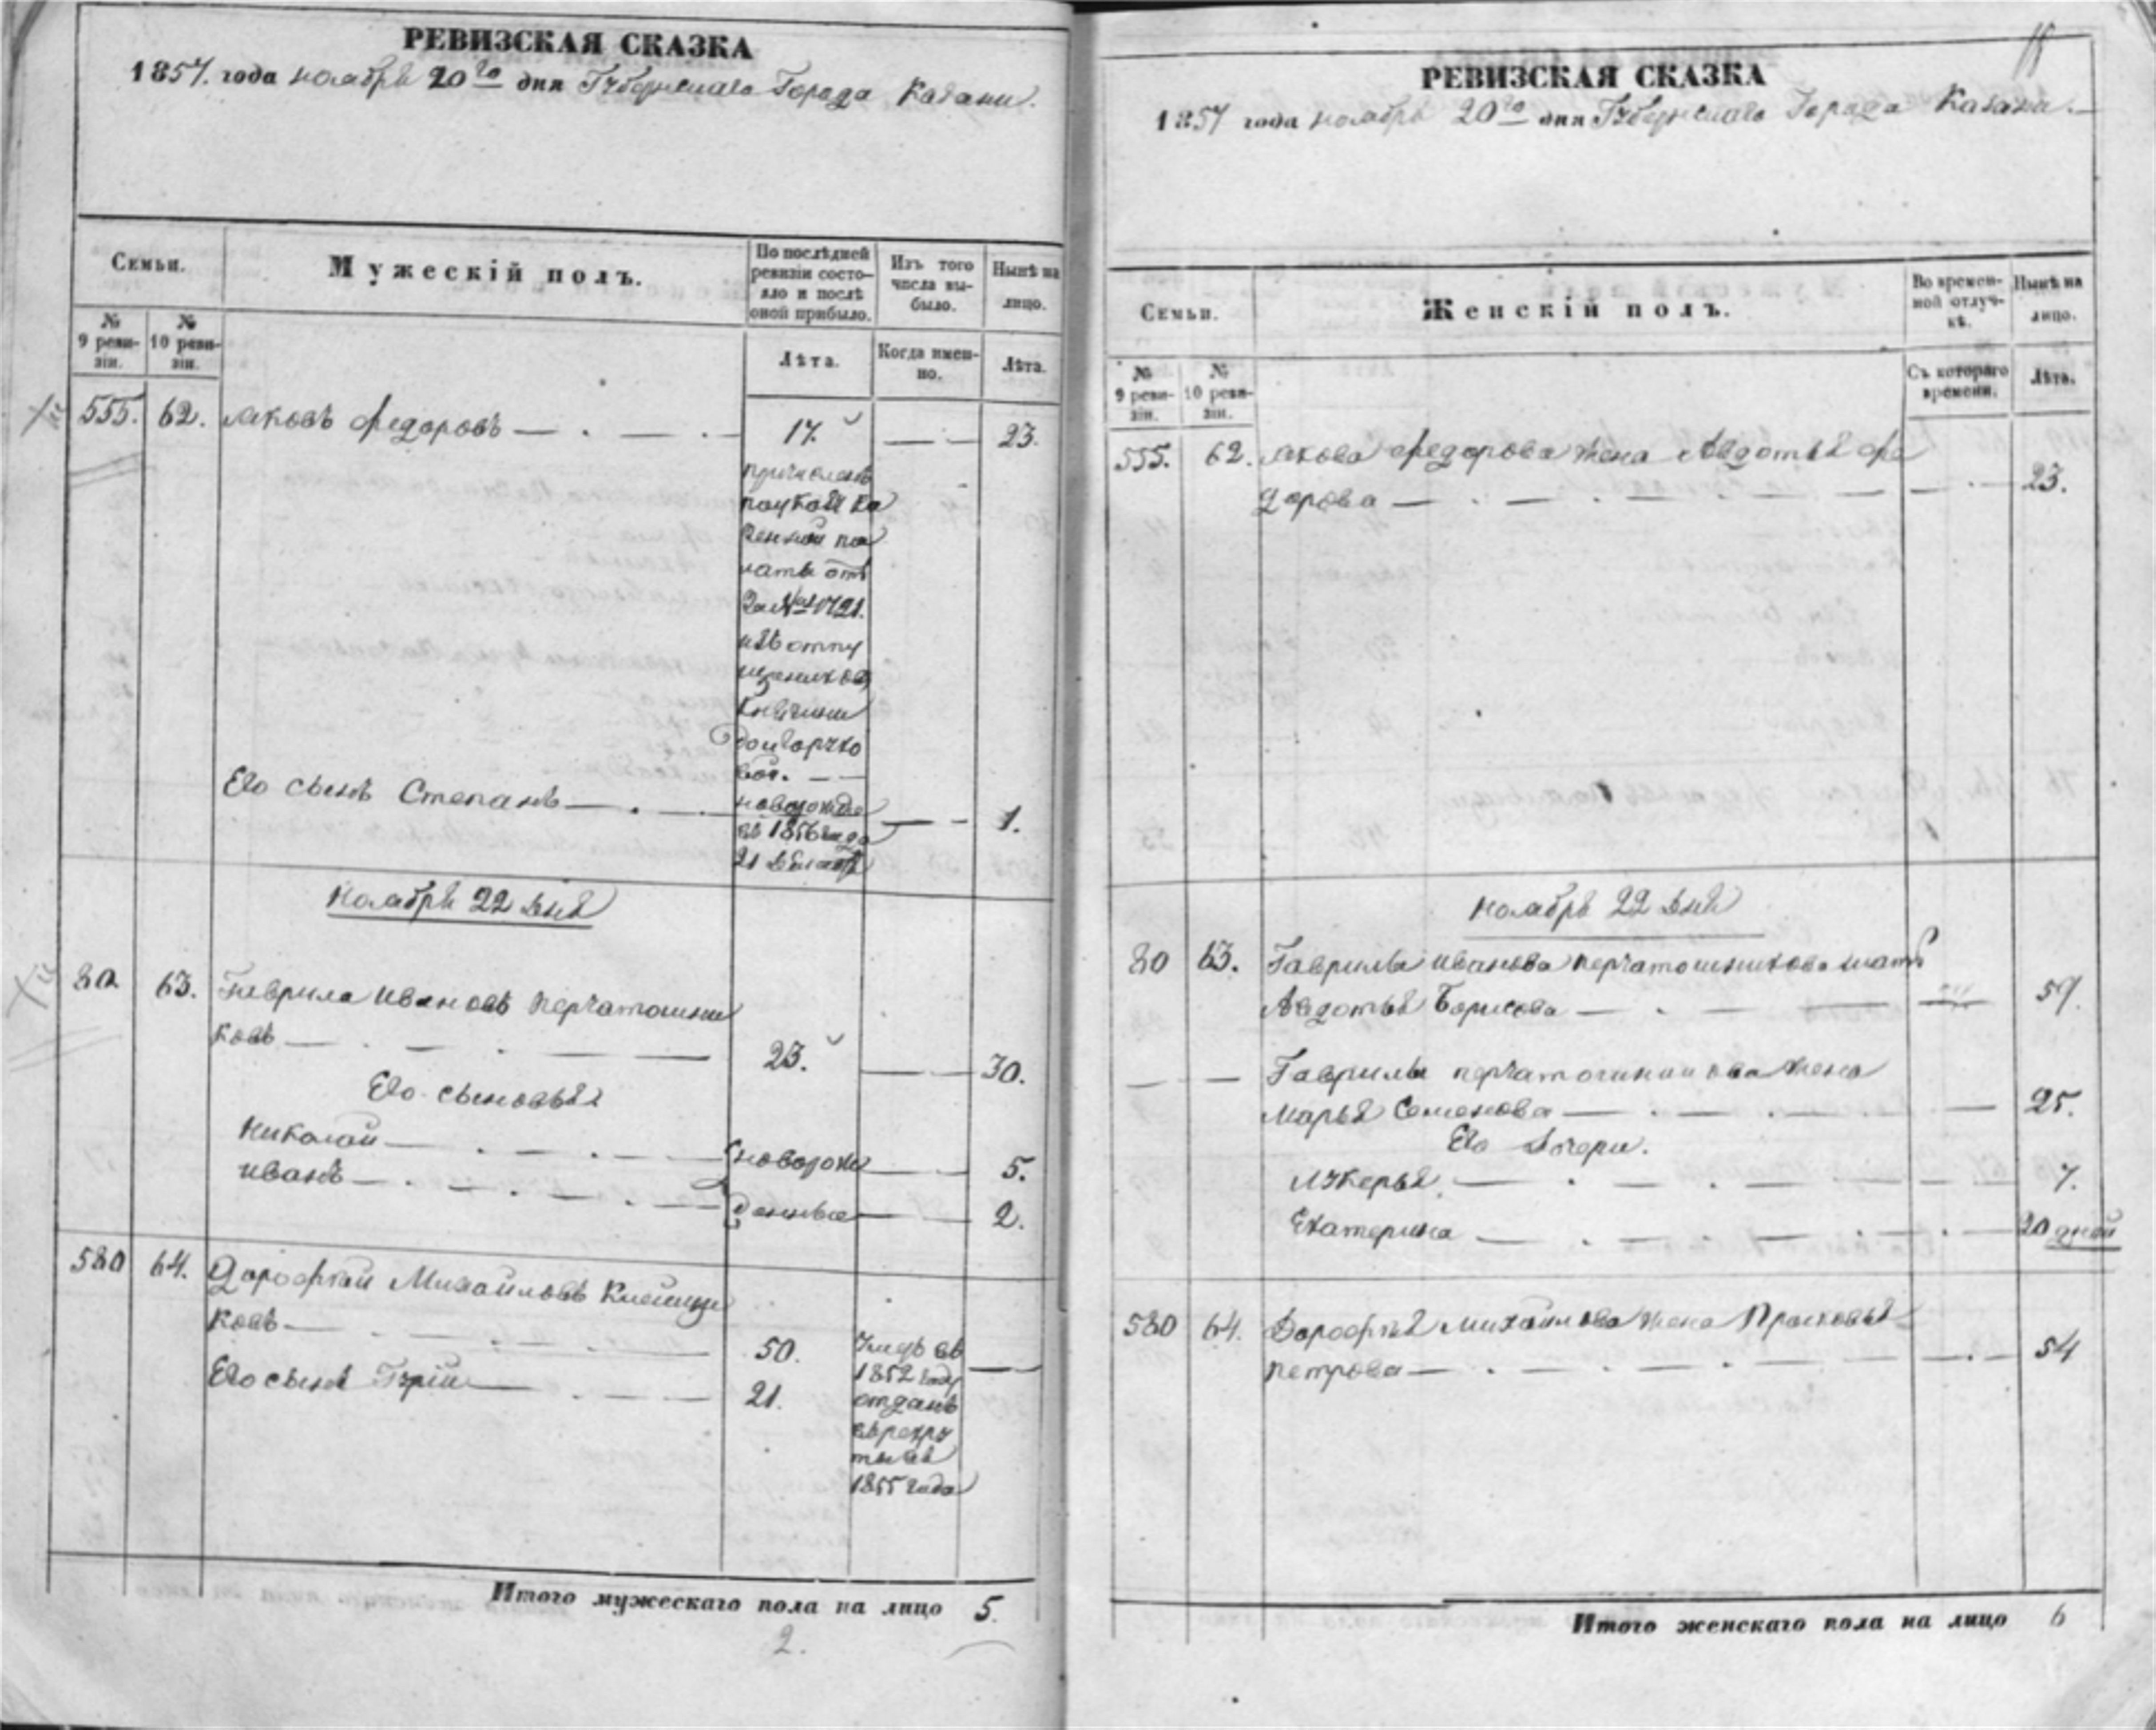 РЕВИЗСКАЯ СКАЗКА
1857. года ноября 20го дня Губернскаго Города Казани.
Семьи.
Мужескій полъ.
По послѣдней
ревизіи состо-
яло и послѣ
оной прибыло.
Изъ того
числа вы-
было.
Нынѣ на
лицо.
№
9 реви-
зіи.
№
10 реви-
зіи.
Лѣта.
Когда имен-
но.
Лѣта.
555. 62. Яковъ Федоровъ 17. 23.
причисленъ
поуказу Ка
зенной па
латы отъ
изъ отпу
щенниковъ
Его сынъ Степанъ
новорожде
въ 1856 года
1.
Ноября 22 дня
80 63. Гаврила Ивановъ Перчатошни
ковъ 23. 30.
Его сыновья
Николай новорож 5.
Иванъ денные 2.
580 64. Дорофей Михайловъ Клещи
ковъ 50.
Его сынъ Гурій 21.
Умеръ въ
1852 году
отданъ
врекру
ты въ
1855 года
Итого мужескаго пола на лицо 5.
2.
РЕВИЗСКАЯ СКАЗКА
1857 года ноября 20го дня Губернскаго Города Казани.
Семьи.
Женскій полъ.
Во времен-
ной отлуч-
кѣ.
Нынѣ на
лицо.
№
9 реви-
зіи.
№
10 реви-
зіи.
Съ котораго
времени.
Лѣта.
555. 62. Якова Федорова жена Авдотья Фе
дорова 23.
Ноября 22 дня
80 63. Гаврилы Иванова Перчатошникова мать
Авдотья Борисова 59.
Гаврилы Перчатошникова жена
Марья Семенова 25.
Его дочери.
Лукерья 7.
Екатерина 20 дней
580 64. Дорофея Михайлова жена Прасковья
Петрова 54
Итого женскаго пола на лицо 6